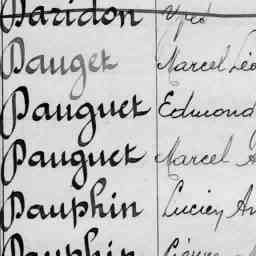 Daridon Yves
Dauget Marcel Léo
Dauguet Edmond
Dauguet Marcel A
Dauphin Lucien An
Dauphin Pierre